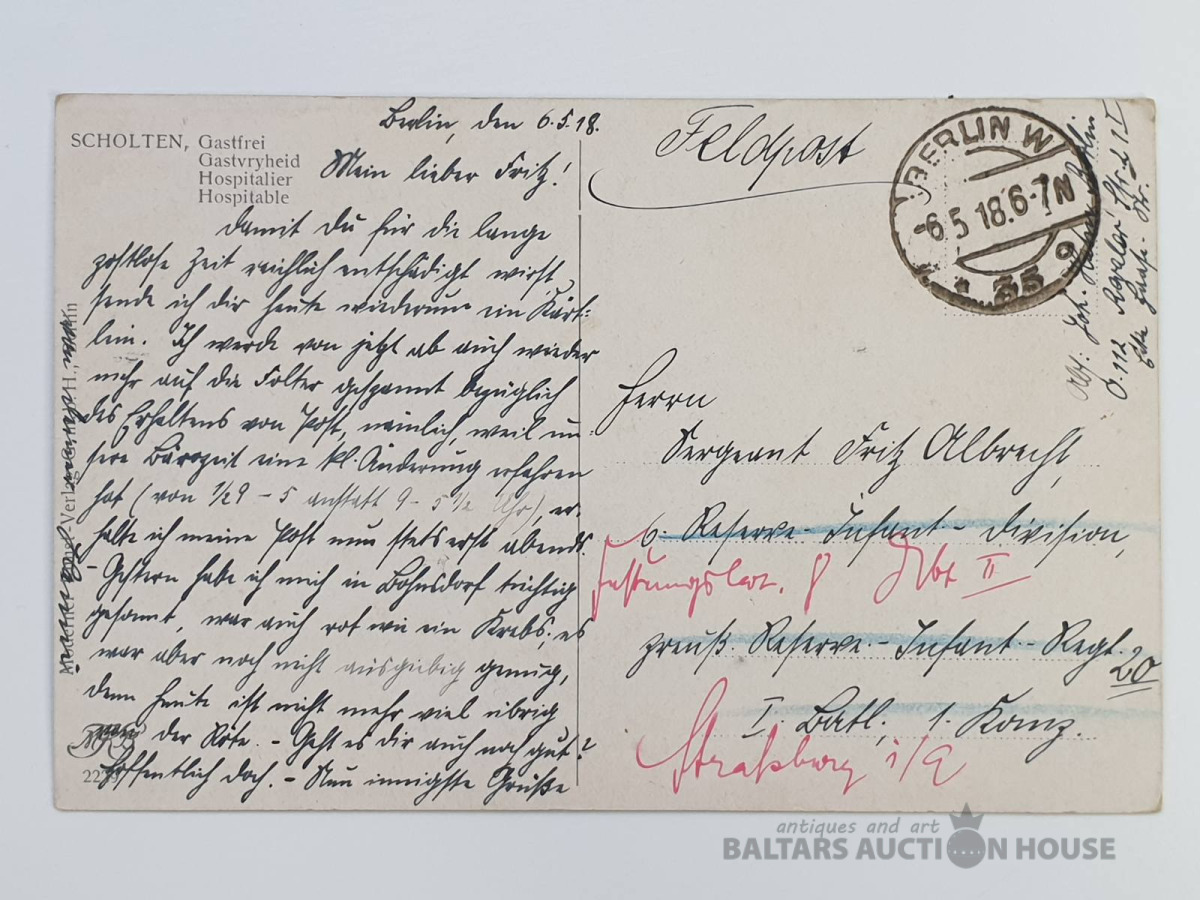 SCHOLTEN, Gastfrei
Gastvryheid
Hospitalier
Hospitable
Berlin, den 6.5.18.
Mein lieber Fritz!
Damit du für die lange
postlose Zeit reichlich entschädigt wirst,
sende ich dir heute wiederum ein Kärt-
lein. Ich werde von jetzt ab auch wieder
mehr auf die Folter gespannt bezüglich
des Erhaltens von Post, nämlich, weil un-
sere Bürozeit eine kl. Änderung erfahren
hat (von 1/2 9 - 5 anstatt 9 - 5 1/2 Uhr), er-
halte ich meine Post nun stets erst abends.
- Gestern habe ich mich in Bohnsdorf tüchtig
gesonnt, war auch rot wie ein Krebs; es
war aber noch nicht ausgiebig genug,
denn heute ist nicht mehr viel übrig
von der Röte. - Geht es dir auch noch gut?
Hoffentlich doch. - Nun innigste Grüße
22
Feldpost
BERLIN W
-6.5.18.6-7N
* 35
Abs: Joh. Berlin
O.112
Herrn
Sergeant Fritz Albrecht,
6. Reserve-Infant-Division,
Festungslaz. II
preuß. Reserve-Infant-Regt. 20
I. Batl, 1. Komp.
Straßburg i/E
antiques and art
BALTARS AUCTION HOUSE